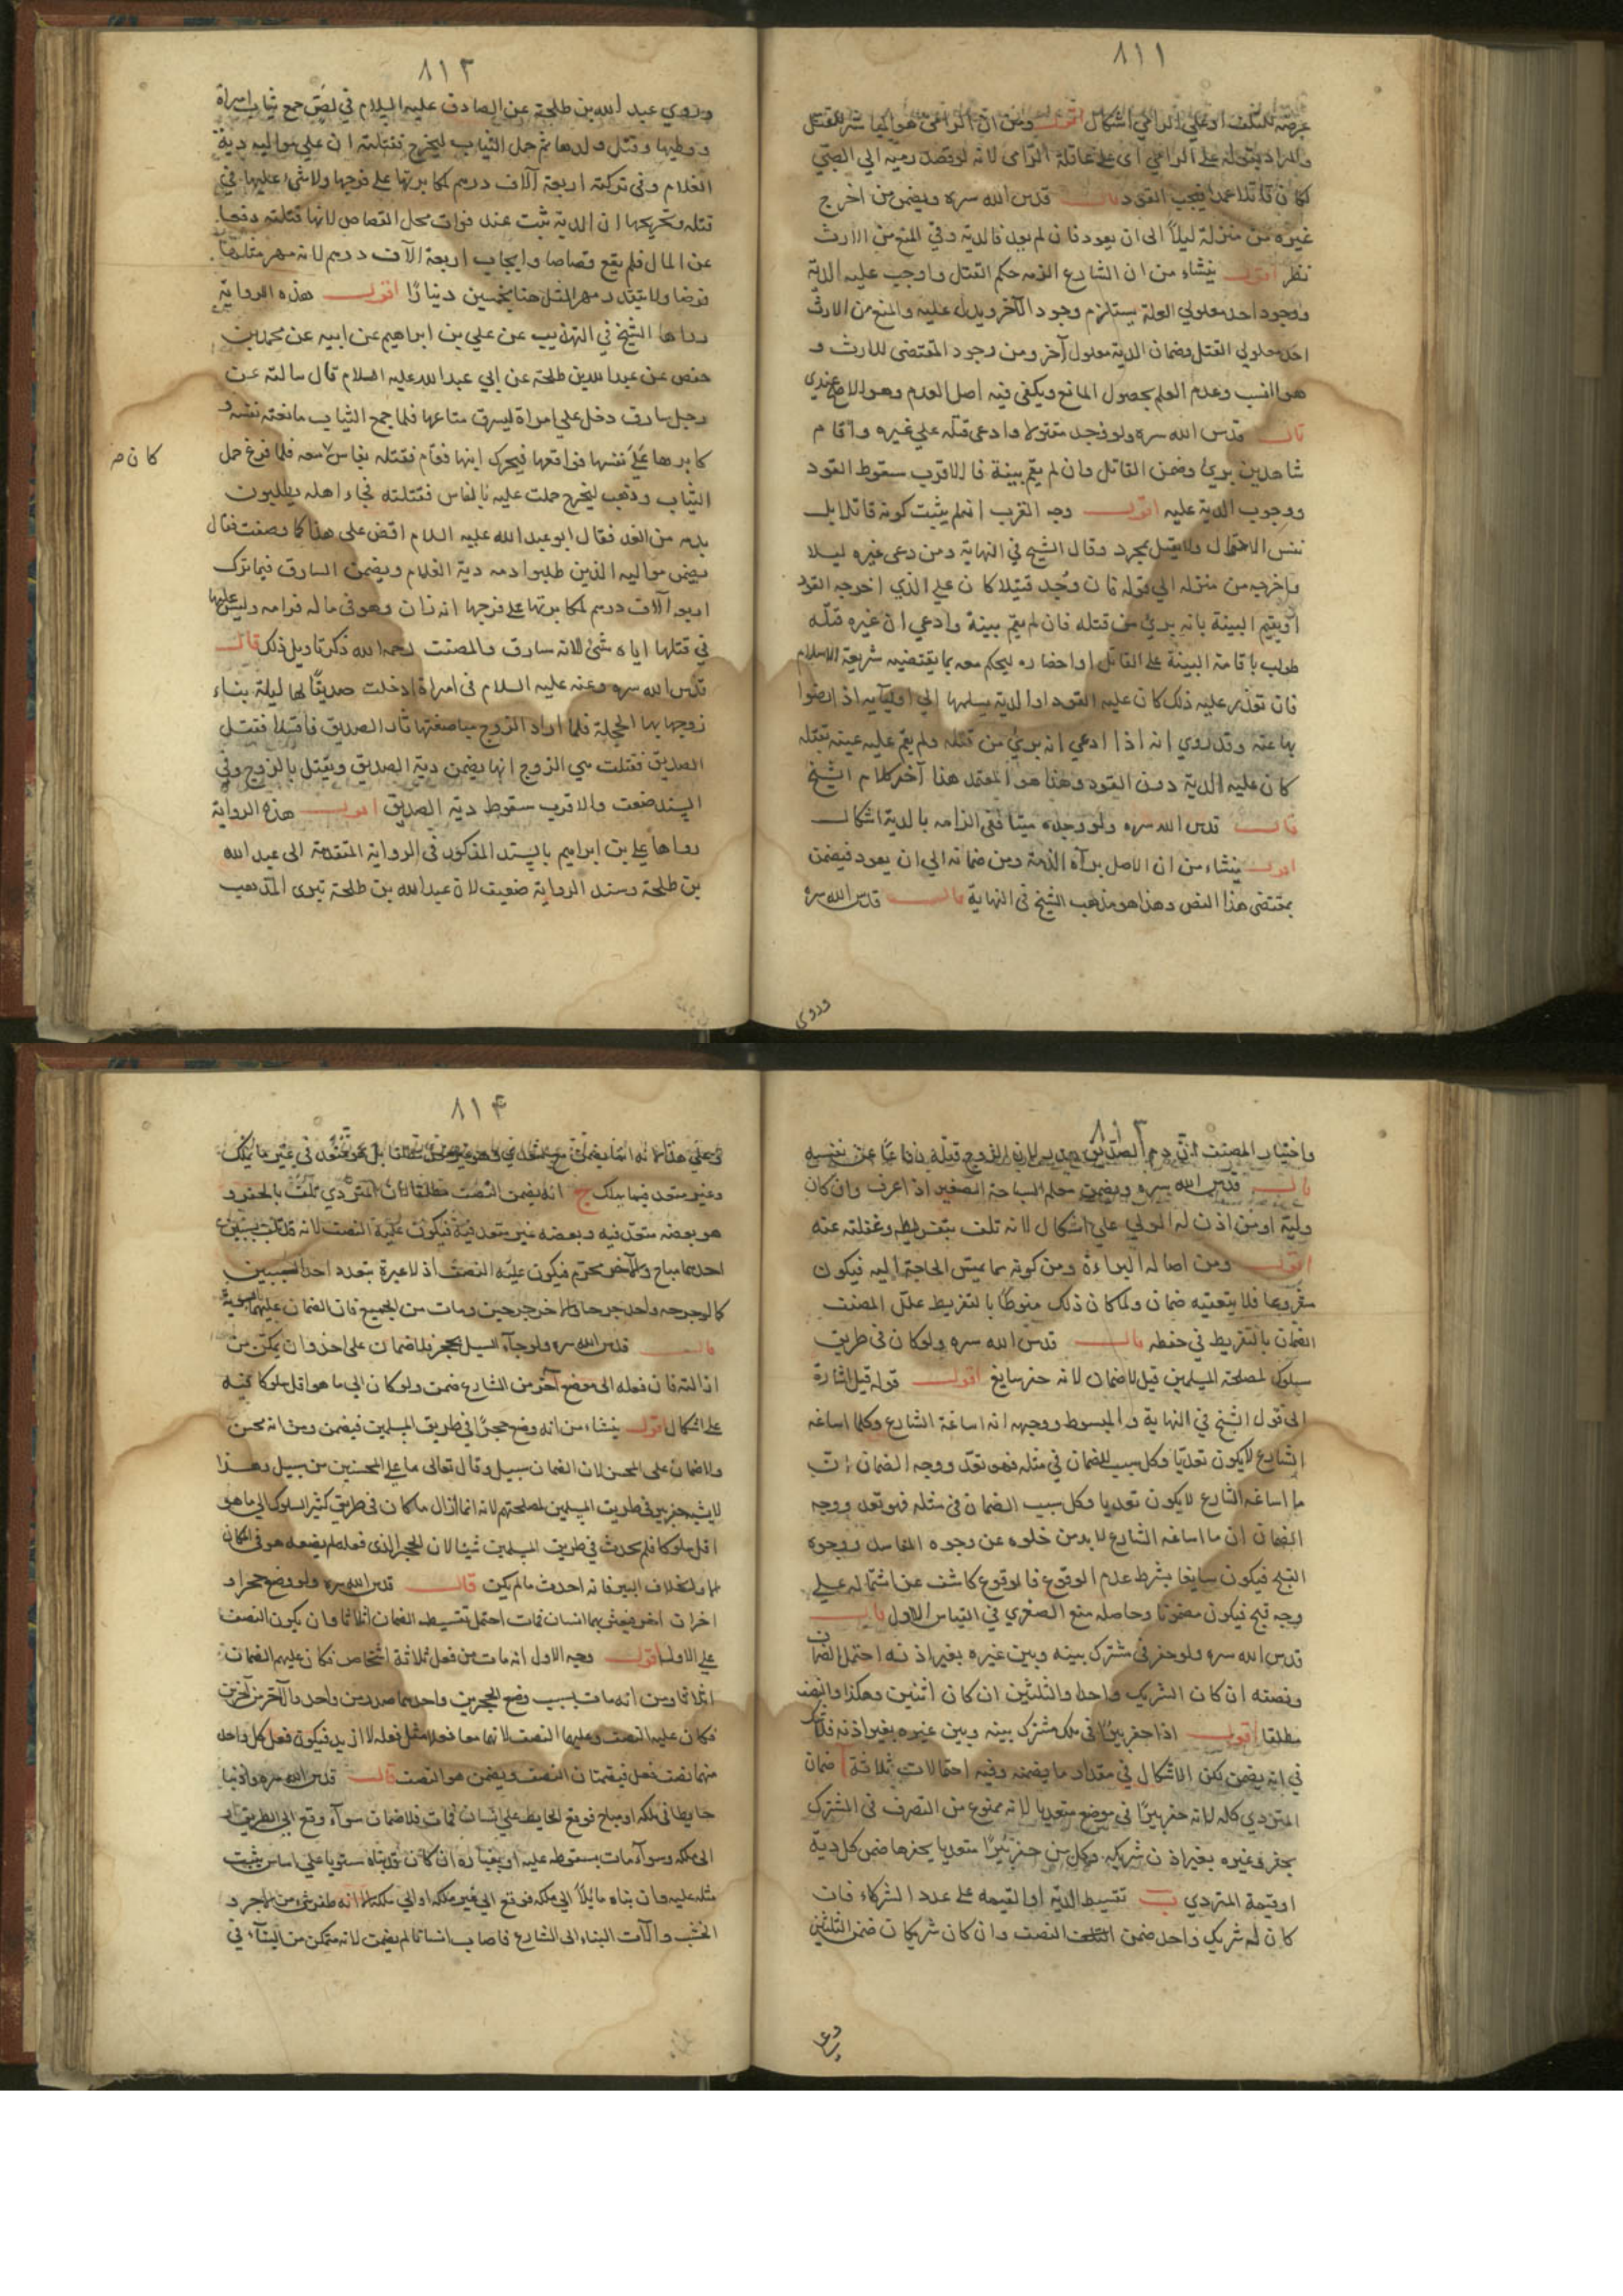 ٨١١
عرضه للتلف او على الرامي اشكال اقول ومن ان الرامي هو المباشر للقتل
والمراد بقوله على الرامي اى على عاقلة الرامى لانه لو قصد رميه الى الصبي
لكان قاتلا عمدا فيجب القود قال قدس الله سره ويضمن من اخرج
غيره من منزله ليلاً الى ان يعود فان لم يعد فالدية وفي المنع من الارث
نظر اقول ينشاء من ان الشارع الزمه حكم القتل واوجب عليه الدية
ووجود احد معلولي العلة يستلزم وجود الآخر ويدل عليه والمنع من الارث
احد معلولي القتل وضمان الدية معلول آخر ومن وجود المقتضى للارث و
هو النسب وعدم العلم بحصول المانع ويكفى فيه اصل العدم وهو الاصح عندي
قال قدس الله سره ولو وجد مقتولا وادعى قتله على غيره واقام
شاهدين بريء وضمن القاتل وان لم يقم بينة فالاقرب سقوط القود
ووجوب الدية عليه اقول وجه القرب انه لم يثبت كونه قاتلا بل
نفس الاحتمال ولا يقتل بمجرد وقال الشيخ في النهاية ومن دعى غيره ليلا
واخرجه من منزله الى قوله فان وجد قتيلا كان على الذي اخرجه القود
او يقيم البينة بانه بريء من قتله فان لم يقم بينة وادعي ان غيره قتله
طولب باقامة البينة على القاتل او احضاره ليحكم معه بما يقتضيه شريعة الاسلام
فان تعذر عليه ذلك كان عليه القود او الدية يسلمها الى اوليآئه اذا رضوا
بها عنه وقد روي انه اذا ادعي انه بريء من قتله ولم يقم عليه بينة بقتله
كان عليه الدية دون القود وهذا هو المعتمد هذا آخر كلام الشيخ
قال قدس الله سره ولو وجده ميتا ففى الزامه بالدية اشكال
اقول ينشاء من ان الاصل برآة الذمة ومن ضمانه الى ان يعود فيضمن
بمقتضى هذا النص وهذا هو مذهب الشيخ في النهاية قال قدس الله سره
وروى
٨١٢
وروي عبد الله بن طلحة عن الصادق عليه السلام في لص جمع ثياب امراة
ووطيها وقتل ولدها ثم حمل الثياب ليخرج فقتلته ان على مواليه دية
الغلام وفى تركته اربعة آلاف درهم لمكابرتها على فرجها ولا شيء عليها في
قتله وتخريجها ان الدية تثبت عند فوات محل القصاص لانها قتلته دفعا
عن المال فلم يقع قصاصا وايجاب اربعة آلاف درهم لانه مهر مثلها
فوضا ولا يتقدر مهر المثل هنا بخمسين دينارًا اقول هذه الرواية
رواها الشيخ في التهذيب عن علي بن ابراهيم عن ابيه عن محمد بن
حفص عن عبد الله بن طلحة عن ابي عبد الله عليه السلام قال سالته عن
رجل سارق دخل على امراة ليسرق متاعها فلما جمع الثياب مانعته نفسه و
كابرها على نفسها فواقعها فتحرك ابنها فقام فقتله بفاس معه فلما فرغ حمل
كان ص
الثياب وذهب ليخرج حملت عليه بالفاس فقتلته فجاء اهله يطلبون
بدمه من الغد فقال ابو عبد الله عليه السلام اقض على هذا كما وصفت فقال
يضمن مواليه الذين طلبوا دمه دية الغلام ويضمن السارق فيما ترك
اربعة آلاف درهم لمكابرتها على فرجها انه زان وهو فى ماله غرامه وليس عليها
في قتلها اياه شئ لانه سارق والمصنف رحمه الله ذكر تاويل ذلك قال
قدس الله سره وعنه عليه السلام في امراة ادخلت صديقًا لها ليلة بناء
زوجها بها الحجلة فلما اراد الزوج مباضعتها ثار الصديق فاقتتلا فقتل
الصديق فقتلت هي الزوج انها يضمن دية الصديق ويقتل بالزوج وفي
السند ضعف والاقرب سقوط دية الصديق اقول هذه الرواية
رواها علي بن ابراهيم بالسند المذكور في الرواية المتقدمة الى عبد الله
بن طلحة وسند الرواية ضعيف لان عبد الله بن طلحة بتري المذهب
٨١٣
واختيار المصنف ان دم الصديق هدر لان الزوج قتله دفاعًا عن نفسه
قال قدس الله سره ويضمن معلم السباحة الصغير اذا غرق وان كان
وليه او من اذن له الولي على اشكال لانه تلف بتفريطه وغفلته عنه
اقول ومن اصالة البراءة ومن كونه مما تمس الحاجة اليه فيكون
مشروعا فلا يتعقبه ضمان ولما كان ذلك منوطًا بالتفريط علل المصنف
الضمان بالتفريط في حفظه قال قدس الله سره ولو كان في طريق
سلوك لمصلحة المسلمين قيل لا ضمان لانه حفر سايغ اقول قوله قيل اشارة
الى قول الشيخ في النهاية والمبسوط ووجهه انه اساغة الشارع وكلما اساغه
الشارع لا يكون تعديًا وكل سبب للضمان في مثله فهو تعد ووجه الضمان ان
ما اساغه الشارع لا يكون تعديا وكل سبب الضمان في مثله فهو تعد ووجه
الضمان ان ما اساغه الشارع لا بد من خلوه عن وجوه المفاسد ووجوه
القبح فيكون سايغا بشرط عدم الوقوع فالوقوع كاشف عن اشتماله على
وجه قبح فيكون مضمونًا وحاصله منع الصغرى في القياس الاول قال
قدس الله سره ولو حفر فى مشترك بينه وبين غيره بغير اذنه احتمل الضمان
ونصفه ان كان الشريك واحدا والثلثين ان كان اثنين وهكذا والنصف
مطلقا اقول اذا حفر بئرًا فى ملك مشترك بينه وبين غيره بغير اذنه فلا شك
في انه يضمن لكن الاشكال في مقدار ما يضمنه وفيه احتمالات ثلاثة آ ضمان
المتردي كله لانه حفر بيرًا في موضع متعديا لانه ممنوع من التصرف في المشترك
بحفر وغيره بغير اذن شريكه وكل من حفر بئرًا متعديا بحفرها ضمن كل دية
او قيمة المتردي ب تقسيط الدية او القيمة على عدد الشركاء فان
كان له شريك واحد ضمن النصف وان كان شريكان ضمن الثلثين
وعلى
٨١٤
وغير متعد فيما يملك ج انه يضمن النصف مطلقا لان المتردي تلف بالحفر و
هو بعضه متعد فيه وبعضه غير متعد فيه فيكون عليه النصف لانه تلف بسببين
احدهما مباح والآخر محرم فيكون عليه النصف اذ لا عبرة بتعدد احد السببين
كما لو جرحه واحد جرحا وآخر جرحين ومات من الجميع فان الضمان عليهما بالسوية
قال قدس الله سره ولو جاء السيل بحجر فلا ضمان على احد وان تمكن من
ازالته فان فعله الى موضع آخر من الشارع ضمن ولو كان الى ما هو اقل سلوكا ففيه
على اشكال اقول ينشاء من انه وضع حجرًا في طريق المسلمين فيضمن ومن انه محسن
ولا ضمان على المحسن لان الضمان سبيل وقال تعالى ما على المحسنين من سبيل وهذا
لا يشبه حفر بير في طريق المسلمين لمصلحتهم لانه انما ازال ما كان في طريق كثير السلوك الى ما هو
اقل سلوكا فلم يحدث في طريق المسلمين شيئا لان الحجر الذى فعله لم يضعه هو في المكان
الاول بخلاف البير فانه احدث ما لم يكن قال قدس الله سره ولو وضع حجرا و
اخران اخر فيعثر بهما انسان فمات احتمل تقسيط الضمان اثلاثا وان يكون النصف
على الاول اقول وجه الاول انه مات من فعل ثلاثة اشخاص فكان عليهم الضمان
اثلاثا ومن انه مات بسبب وضع الحجرين واحدهما صدر من واحد والآخر من آخرين
فكان عليه النصف وعليهما النصف لانهما معا فعلا مثل فعله لا ازيد فيكون فعل كل واحد
منهما نصف فعل فيضمنان النصف ويضمن هو النصف قال قدس الله سره ولو بنا
حايطا في ملكه او مباح فوقع الحايط على انسان فمات فلا ضمان سوآء وقع الى الطريق او
الى ملكه وسوآء مات بسقوطه عليه او بغباره ان كان قد بناه مستويا على اساس يثبت
مثله عليه وان بناه مائلاً الى ملكه فوقع الى غير ملكه او الى ملكه الا انه طفر شيء من الآجر و
الخشب وآلات البناء الى الشارع فاصاب انسانا لم يضمن لانه متمكن من البناء في